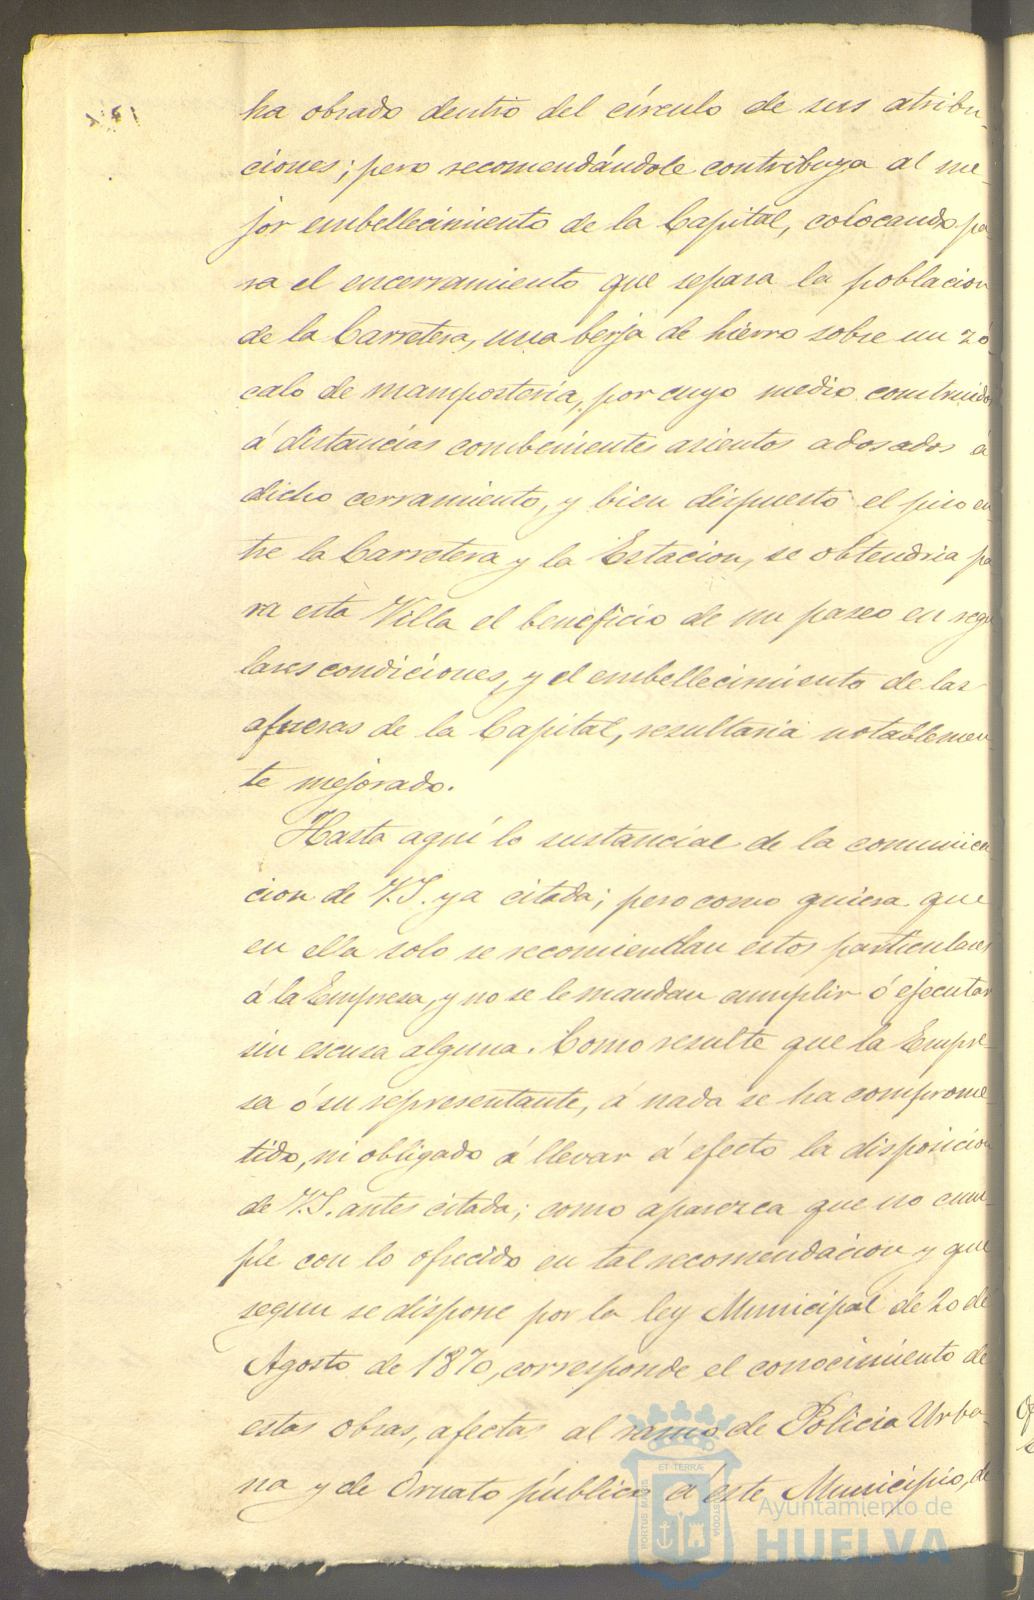 ha obrado dentro del círculo de sus atribu-
ciones; pero recomendándole contribuya al me-
jor embellecimiento de la Capital, colocando pa
ra el encerramiento que separa la poblacion
de la Carretera, una berja de hierro sobre un zó-
calo de mamposteria, por cuyo medio, contruidos
á distancias combenientes asientos adosados á
dicho cerramiento, y bien dispuesto el piso en
tre la Carretera y la Estacion, se obtendria pa
ra esta Villa el beneficio de un paseo en regu
lares condiciones, y el embellecimiento de las
afueras de la Capital, resultaria notablemen-
te mejorado.
Hasta aquí lo sustancial de la comunica
cion de V.S. ya citada; pero como quiera que
en ella solo se recomiendan estos particulares
á la Empresa, y no se le mandan cumplir ó ejecutar
sin escusa alguna. Como resulte que la Empre-
sa ó su representante, á nada se ha comprome-
tido, ni obligado á llevar á efecto la disposicion
de V.S. antes citada; como aparezca que no cum-
ple con lo ofrecido en tal recomendacion y que
segun se dispone por la ley Municipal de 20 de
Agosto de 1870, corresponde el conocimiento de
estas obras, afectas al ramo de Policia Urba-
na y de Ornato público á este Municipio, de
PORTUS MARIS
ET TERRÆ
CUSTODIA
Ayuntamiento de
HUELVA